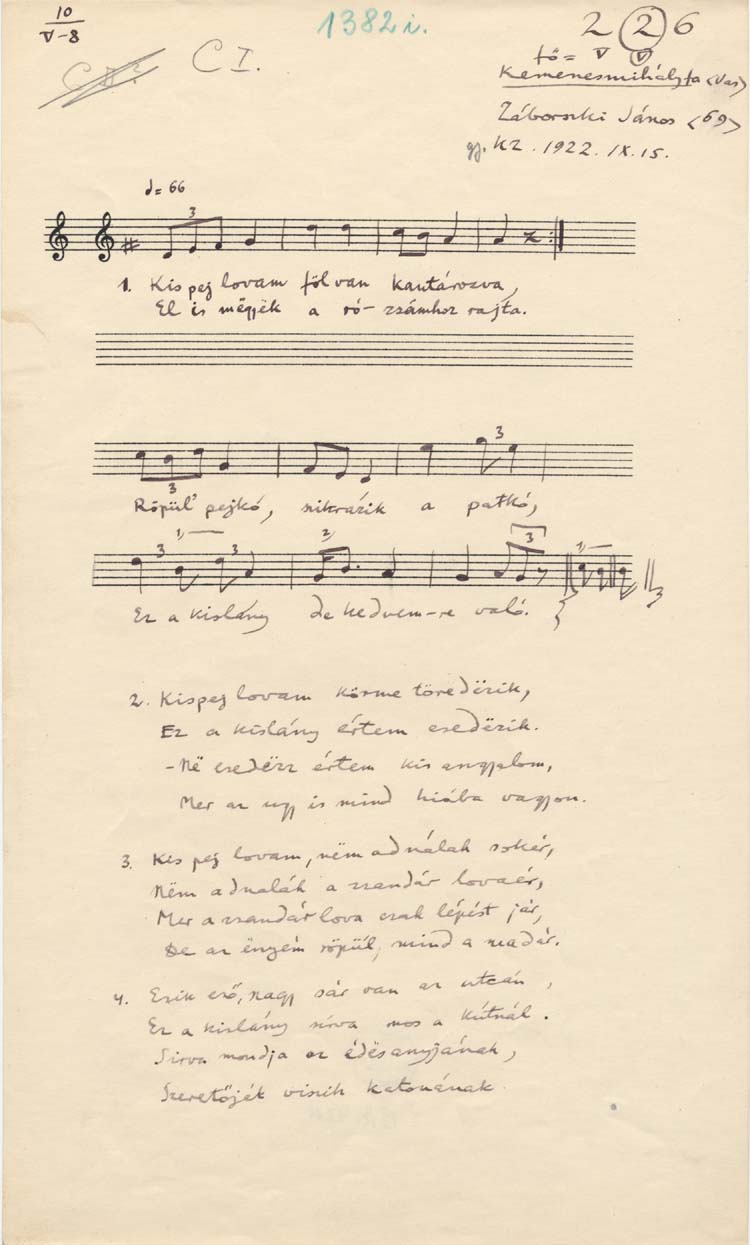 10
V-8
1382 i.
2 2 6
C I.
tő = V V
Kemenesmihályfa <Vas>
Záborszki János <69>
gj. KZ. 1922. IX. 15.
= 66
3
1. Kis pej lovam föl van kantározva,
El is mëgyëk a ró- zsámhoz rajta.
3
3
Röpül' pejkó, szikrázik a patkó,
3 1) 3 2) 3 1)
Ez a kislány de kedvem-re való.
3
2. Kispej lovam körme töredëzik,
Ez a kislány értem esedëzik.
-Në esedëzz értem kis angyalom,
Mer az ugy is mind hiába vagyon.
3. Kis pej lovam, nëm adnálak sokér,
Nëm adnalák a zsandár lovaér,
Mer a zsandár lova csak lépést jár,
De az ënyém röpül, mind a madár.
4. Esik eső, nagy sár van az utcán,
Ez a kislány sírva mos a kútnál.
Sirva mondja az édësanyjának,
Szeretőjét viszik katonának.